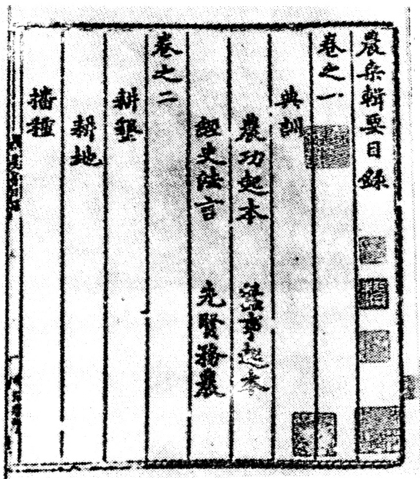 農桑輯要目錄
卷之一
典訓
農功起本 蠶事起本
經史法言 先賢務農
卷之二
耕墾
耕地
播種